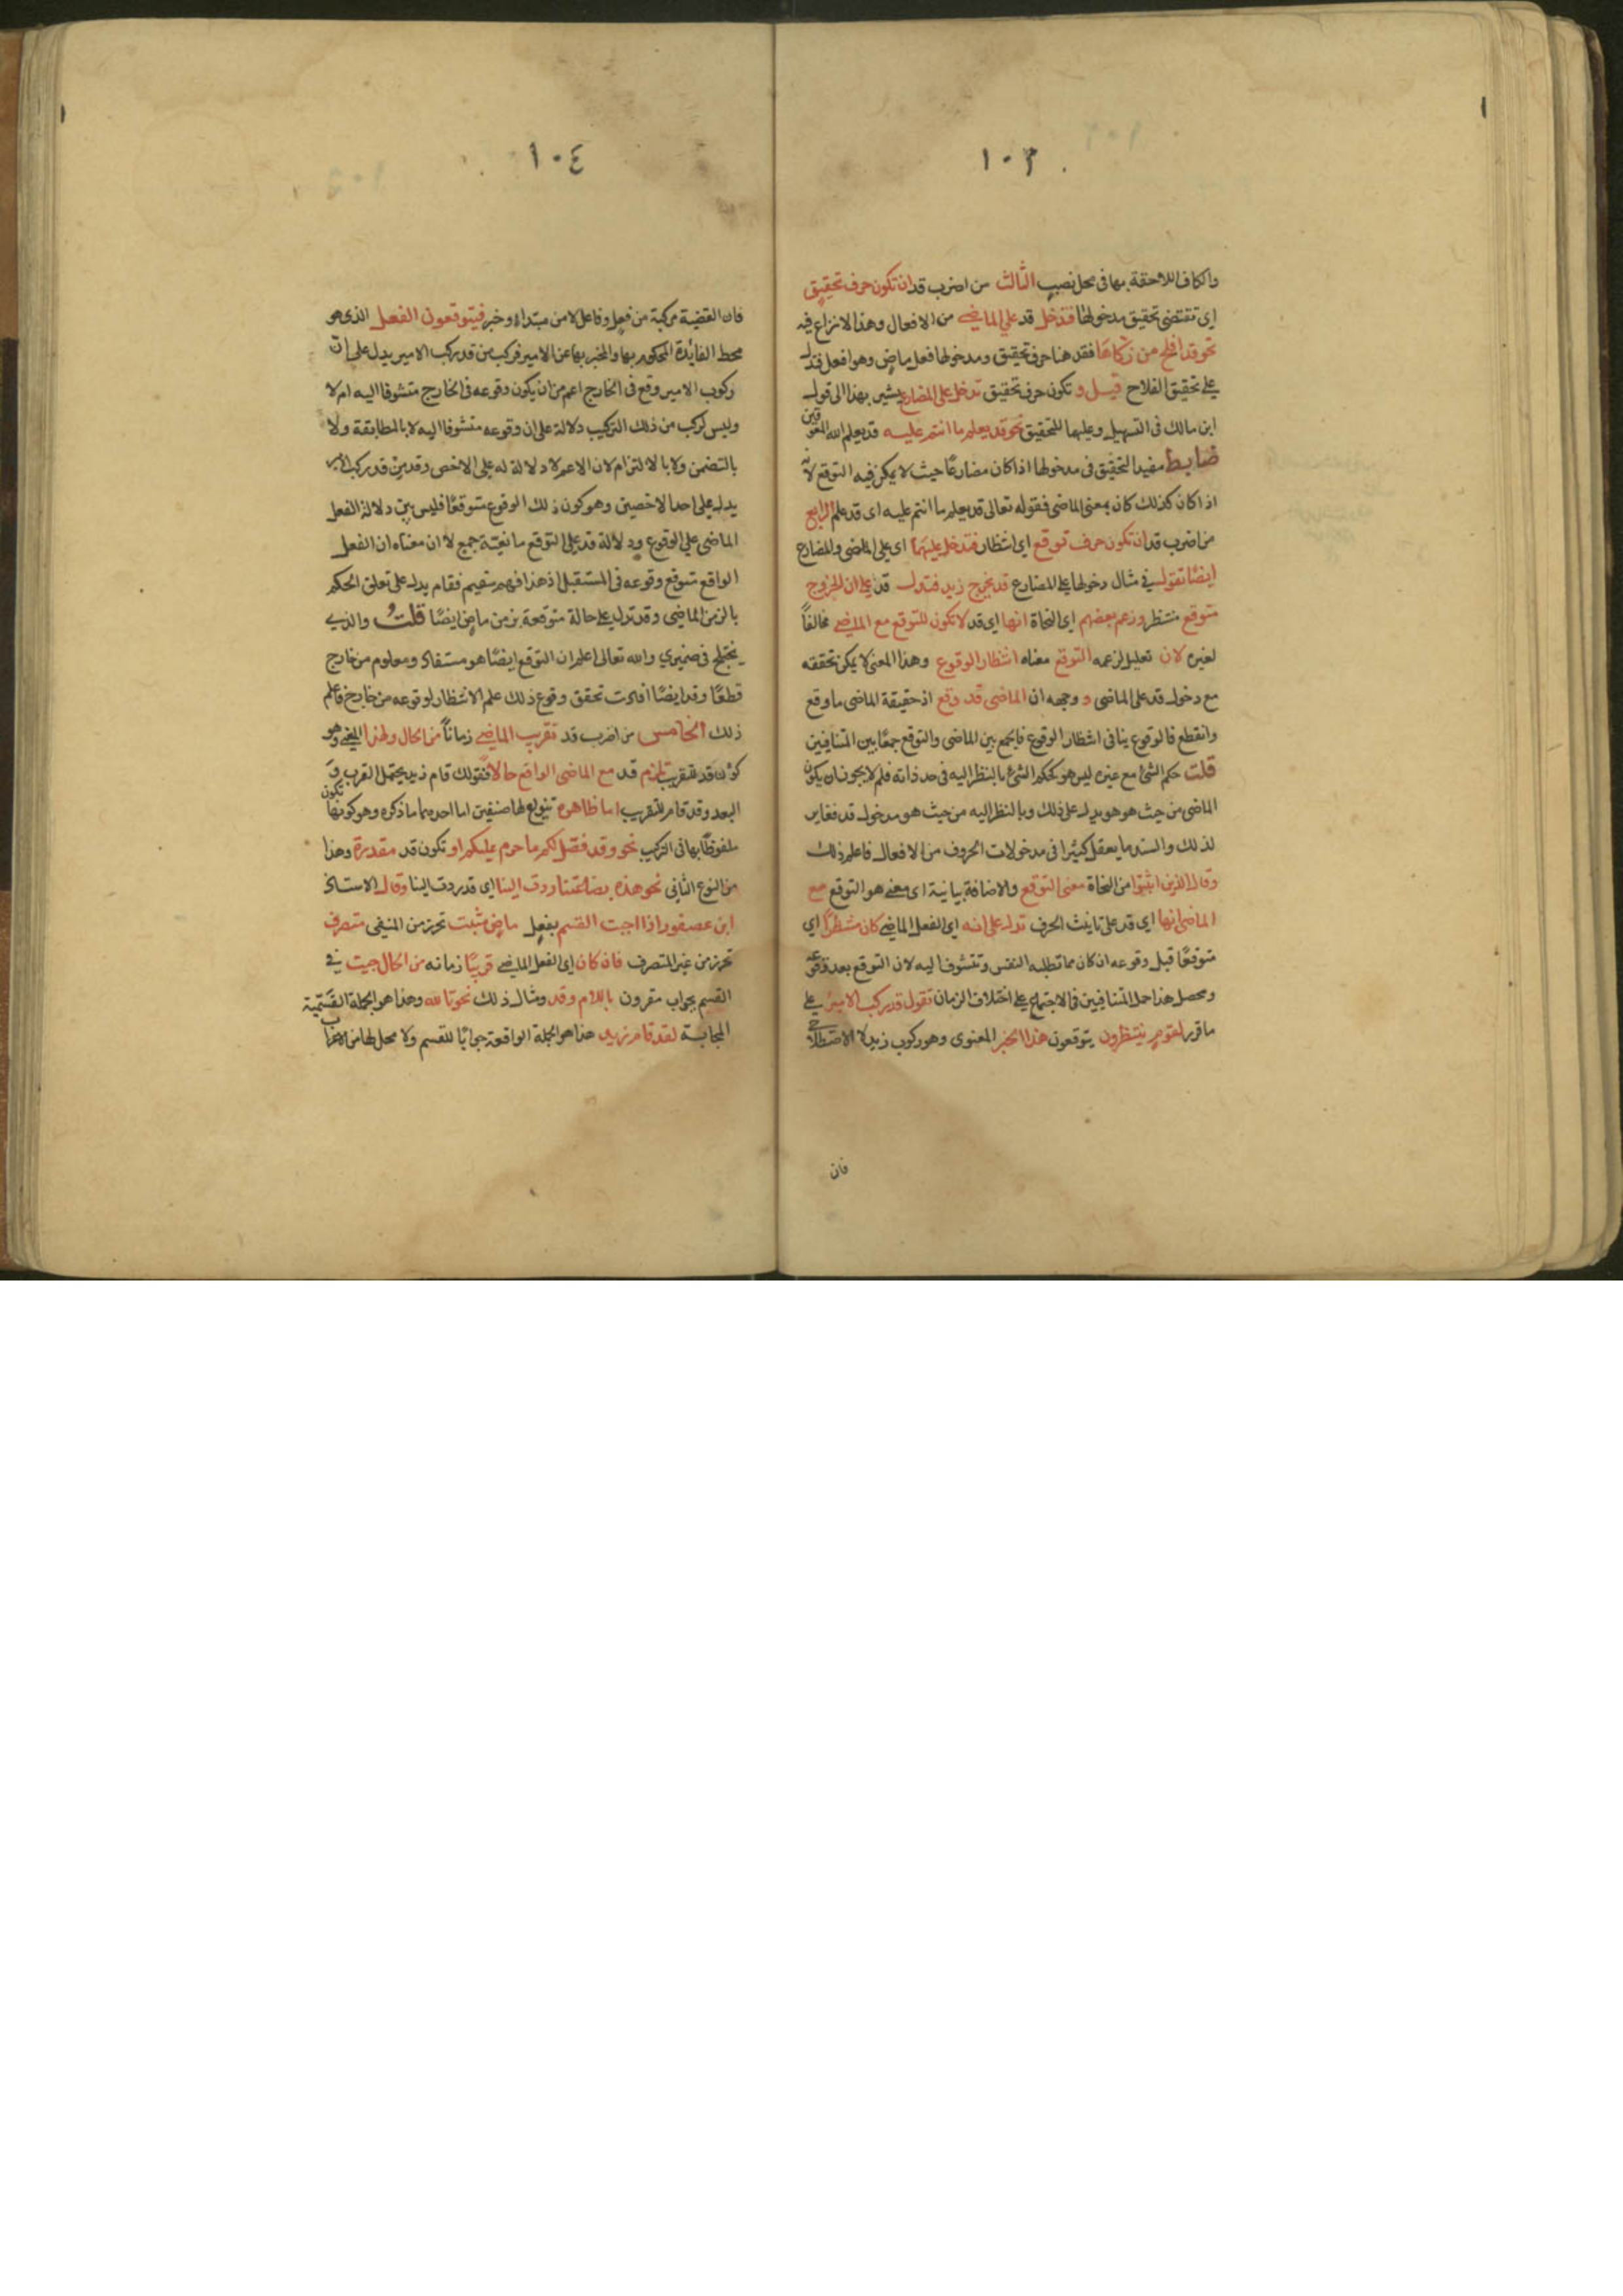 ١٠٣
والكاف اللاحقة بها في محل نصب الثالث من اضرب قد ان تكون حرف تحقيق
اي تقتضي تحقيق مدخولها فتدخل قد على الماضي من الافعال وهذا الانزاع فيه
نحو قد افلح من زكاها فقد هنا حرف تحقيق ومدخولها فعل ماض وهو افعل فتدل
على تحقيق الفلاح قيل وتكون حرف تحقيق تدخل على المضارع يشير بهذا الى قول
ابن مالك في التسهيل وعليها للتحقيق نحو قد يعلم ما انتم عليه قد يعلم الله المعوقين
ضابط مفيد التحقيق في مدخولها اذا كان مضارعًا حيث لا يمكن فيه التوقع لانه
اذا كان كذلك كان بمعنى الماضي فقوله تعالى قد يعلم ما انتم عليه اى قد علم الرابع
من اضرب قد ان تكون حرف توقع اي انتظار فتدخل عليهما اى على الماضي والمضارع
ايضًا تقول في مثال دخولها على المضارع قد يخرج زيد فتدل قد على ان الخروج
متوقع منتظر وزعم بعضهم اي النحاة انها اى قد لا تكون للتوقع مع الماضي مخالفًا
لغيره لان تعليل لزعمه التوقع معناه انتظار الوقوع وهذا المعنى لا يمكن تحققه
مع دخول قد على الماضي و ووجهه ان الماضي قد وقع اذ حقيقة الماضي ما وقع
وانقطع فالوقوع ينافي انتظار الوقوع فالجمع بين الماضي والتوقع جمعًا بين المتنافيين
قلت حكم الشئ مع غيره ليس هو كحكم الشئ بالنظر اليه في حد ذاته فلم لا يجوز ان يكون
الماضي من حيث هو هو يدل على ذلك وبالنظر اليه من حيث هو مدخول قد فغاير
لذلك والسند ما يعقل كثيرا في مدخولات الحروف من الافعال فاعلم ذلك
وقال الذين اثبتوا من النحاة معنى التوقع والاضافة بيانية اى معنى هو التوقع مع
الماضي انها اى قد على تانيث الحرف تدل على انه اي الفعل الماضي كان منتظرًا اي
متوقعًا قبل وقوعه ان كان مما تطلبه النفس وتتشوف اليه لان التوقع بعد وقوعه
ومحصل هذا حمل المتنافيين في الاجتماع على اختلاف الزمان تقول قد ركب الامير على
ما قرر لقوم ينتظرون يتوقعون هذا الخبر المعنوى وهو ركوب زيد لا الاصطلاحي
فان
١٠٤
فان القضية مركبة من فعل وفاعل لا من مبتداء وخبر فيتوقعون الفعل الذي هو
محط الفائدة المحكوم بها والمخبر بها عن الامير فركب من قد ركب الامير يدل على ان
ركوب الامير وقع في الخارج اعم من ان يكون وقوعه في الخارج متشوفا اليه ام لا
وليس لركب من ذلك التركيب دلالة على ان وقوعه متشوفا اليه لا بالمطابقة ولا
بالتضمن ولا بالالتزام لان الاعم لا دلالة له على الاخص وقد من قد ركب الامير
يدل على احد الاخصين وهو كون ذلك الوقوع متوقعًا فليس بين دلالة الفعل
الماضي على الوقوع ودلالة قد على التوقع مانعية جمع لا ان معناه ان الفعل
الواقع متوقع وقوعه في المستقبل اذ هذا فهم سقيم فقام يدل على تعلق الحكم
بالزمن الماضي وقد تدل على حالة متوقعة بزمن ماض ايضًا قلت والذي
يختلج في ضميري والله تعالى اعلم ان التوقع ايضًا هو مستفاد ومعلوم من خارج
قطعًا وقد ايضًا افادت تحقق وقوع ذلك علم الانتظار لوقوعه من خارج فاعلم
ذلك الخامس من اضرب قد تقريب الماضي زمانًا من الحال ولهذا المعنى وهو
كون قد للتقريب تلزم قد مع الماضي الواقع حالا فقولك قام زيد يحتمل القرب و
البعد وقد قام للتقريب اما ظاهره تنويع لها صنفين اما احدهما ما ذكره وهو كونها تكون
ملفوظًا بها في التركيب نحو وقد فصل لكم ما حرم عليكم او تكون قد مقدرة وهذا
من النوع الثاني نحو هذه بضاعتنا ردت الينا اي قد ردت الينا وقال الاستاذ
ابن عصفور اذا اجبت القسم بفعل ماض مثبت تحرز من المنفي متصرف
تحرز من غير المتصرف فان كان اى الفعل الماضي قريبًا زمانه من الحال جيت في
القسم بجواب مقرون باللام وقد ومثال ذلك نحو تالله وهذا هو الجملة القسمية
المجابة لقد قام زيد هذا هو الجملة الواقعة جوابًا للقسم ولا محل لها من الاعراب